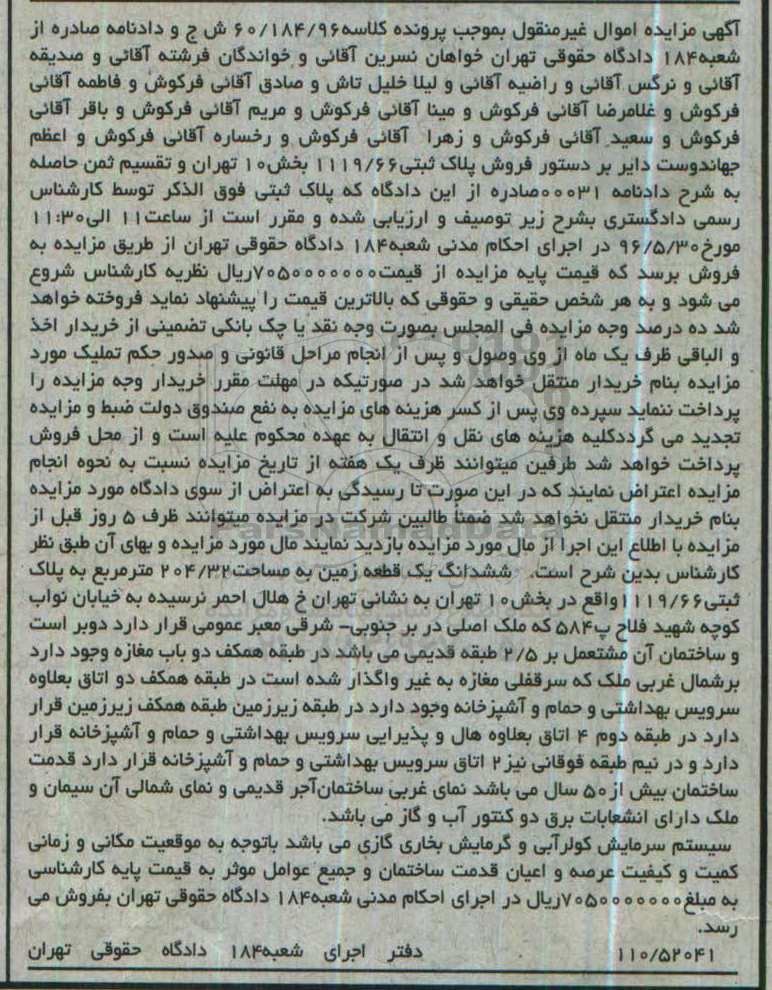 آگهی مزایده اموال غیرمنقول بموجب پرونده کلاسه ۶۰/۱۸۴/۹۶ ش ج و دادنامه صادره از
شعبه ۱۸۴ دادگاه حقوقی تهران خواهان نسرین آقائی و خواندگان فرشته آقائی و صدیقه
آقائی و نرگس آقائی و راضیه آقائی و لیلا خلیل تاش و صادق آقائی فرکوش و فاطمه آقائی
فرکوش و غلامرضا آقائی فرکوش و مینا آقائی فرکوش و مریم آقائی فرکوش و باقر آقائی
فرکوش و سعید آقائی فرکوش و زهرا آقائی فرکوش و رخساره آقائی فرکوش و اعظم
جهاندوست دایر بر دستور فروش پلاک ثبتی ۱۱۱۹/۶۶ بخش ۱۰ تهران و تقسیم ثمن حاصله
به شرح دادنامه ۰۰۰۳۱ صادره از این دادگاه که پلاک ثبتی فوق الذکر توسط کارشناس
رسمی دادگستری بشرح زیر توصیف و ارزیابی شده و مقرر است از ساعت ۱۱ الی ۱۱:۳۰
مورخ ۹۶/۵/۳۰ در اجرای احکام مدنی شعبه ۱۸۴ دادگاه حقوقی تهران از طریق مزایده به
فروش برسد که قیمت پایه مزایده از قیمت ۷۰۵۰۰۰۰۰۰۰۰ ریال نظریه کارشناس شروع
می شود و به هر شخص حقیقی و حقوقی که بالاترین قیمت را پیشنهاد نماید فروخته خواهد
شد ده درصد وجه مزایده فی المجلس بصورت وجه نقد یا چک بانکی تضمینی از خریدار اخذ
و الباقی ظرف یک ماه از وی وصول و پس از انجام مراحل قانونی و صدور حکم تملیک مورد
مزایده بنام خریدار منتقل خواهد شد در صورتیکه در مهلت مقرر خریدار وجه مزایده را
پرداخت ننماید سپرده وی پس از کسر هزینه های مزایده به نفع صندوق دولت ضبط و مزایده
تجدید می گرددکلیه هزینه های نقل و انتقال به عهده محکوم علیه است و از محل فروش
پرداخت خواهد شد طرفین میتوانند ظرف یک هفته از تاریخ مزایده نسبت به نحوه انجام
مزایده اعتراض نمایند که در این صورت تا رسیدگی به اعتراض از سوی دادگاه مورد مزایده
بنام خریدار منتقل نخواهد شد ضمناً طالبین شرکت در مزایده میتوانند ظرف ۵ روز قبل از
مزایده با اطلاع این اجرا از مال مورد مزایده بازدید نمایند مال مورد مزایده و بهای آن طبق نظر
کارشناس بدین شرح است. ششدانگ یک قطعه زمین به مساحت ۲۰۴/۳۲ مترمربع به پلاک
ثبتی ۱۱۱۹/۶۶ واقع در بخش ۱۰ تهران به نشانی تهران خ هلال احمر نرسیده به خیابان نواب
کوچه شهید فلاح پ ۵۸۴ که ملک اصلی در بر جنوبی- شرقی معبر عمومی قرار دارد دوبر است
و ساختمان آن مشتعمل بر ۲/۵ طبقه قدیمی می باشد در طبقه همکف دو باب مغازه وجود دارد
برشمال غربی ملک که سرقفلی مغازه به غیر واگذار شده است در طبقه همکف دو اتاق بعلاوه
سرویس بهداشتی و حمام و آشپزخانه وجود دارد در طبقه زیرزمین طبقه همکف زیرزمین قرار
دارد در طبقه دوم ۴ اتاق بعلاوه هال و پذیرایی سرویس بهداشتی و حمام و آشپزخانه قرار
دارد و در نیم طبقه فوقانی نیز ۲ اتاق سرویس بهداشتی و حمام و آشپزخانه قرار دارد قدمت
ساختمان بیش از ۵۰ سال می باشد نمای غربی ساختمان آجر قدیمی و نمای شمالی آن سیمان و
ملک دارای انشعابات برق دو کنتور آب و گاز می باشد.
سیستم سرمایش کولرآبی و گرمایش بخاری گازی می باشد باتوجه به موقعیت مکانی و زمانی
کمیت و کیفیت عرصه و اعیان قدمت ساختمان و جمیع عوامل موثر به قیمت پایه کارشناسی
به مبلغ ۷۰۵۰۰۰۰۰۰۰۰ ریال در اجرای احکام مدنی شعبه ۱۸۴ دادگاه حقوقی تهران بفروش می
رسد.
۱۱۰/۵۲۰۴۱ دفتر اجرای شعبه ۱۸۴ دادگاه حقوقی تهران